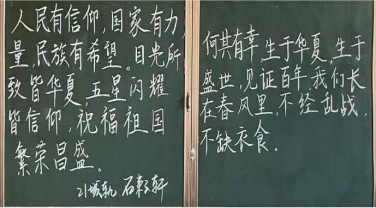 人民有信仰,国家有力
量,民族有希望。目光所
致皆华夏,五星闪耀
皆信仰,祝福祖国
繁荣昌盛。
何其有幸,生于华夏,生于
盛世,见证百年,我们长
在春风里,不经乱战,
不缺衣食.